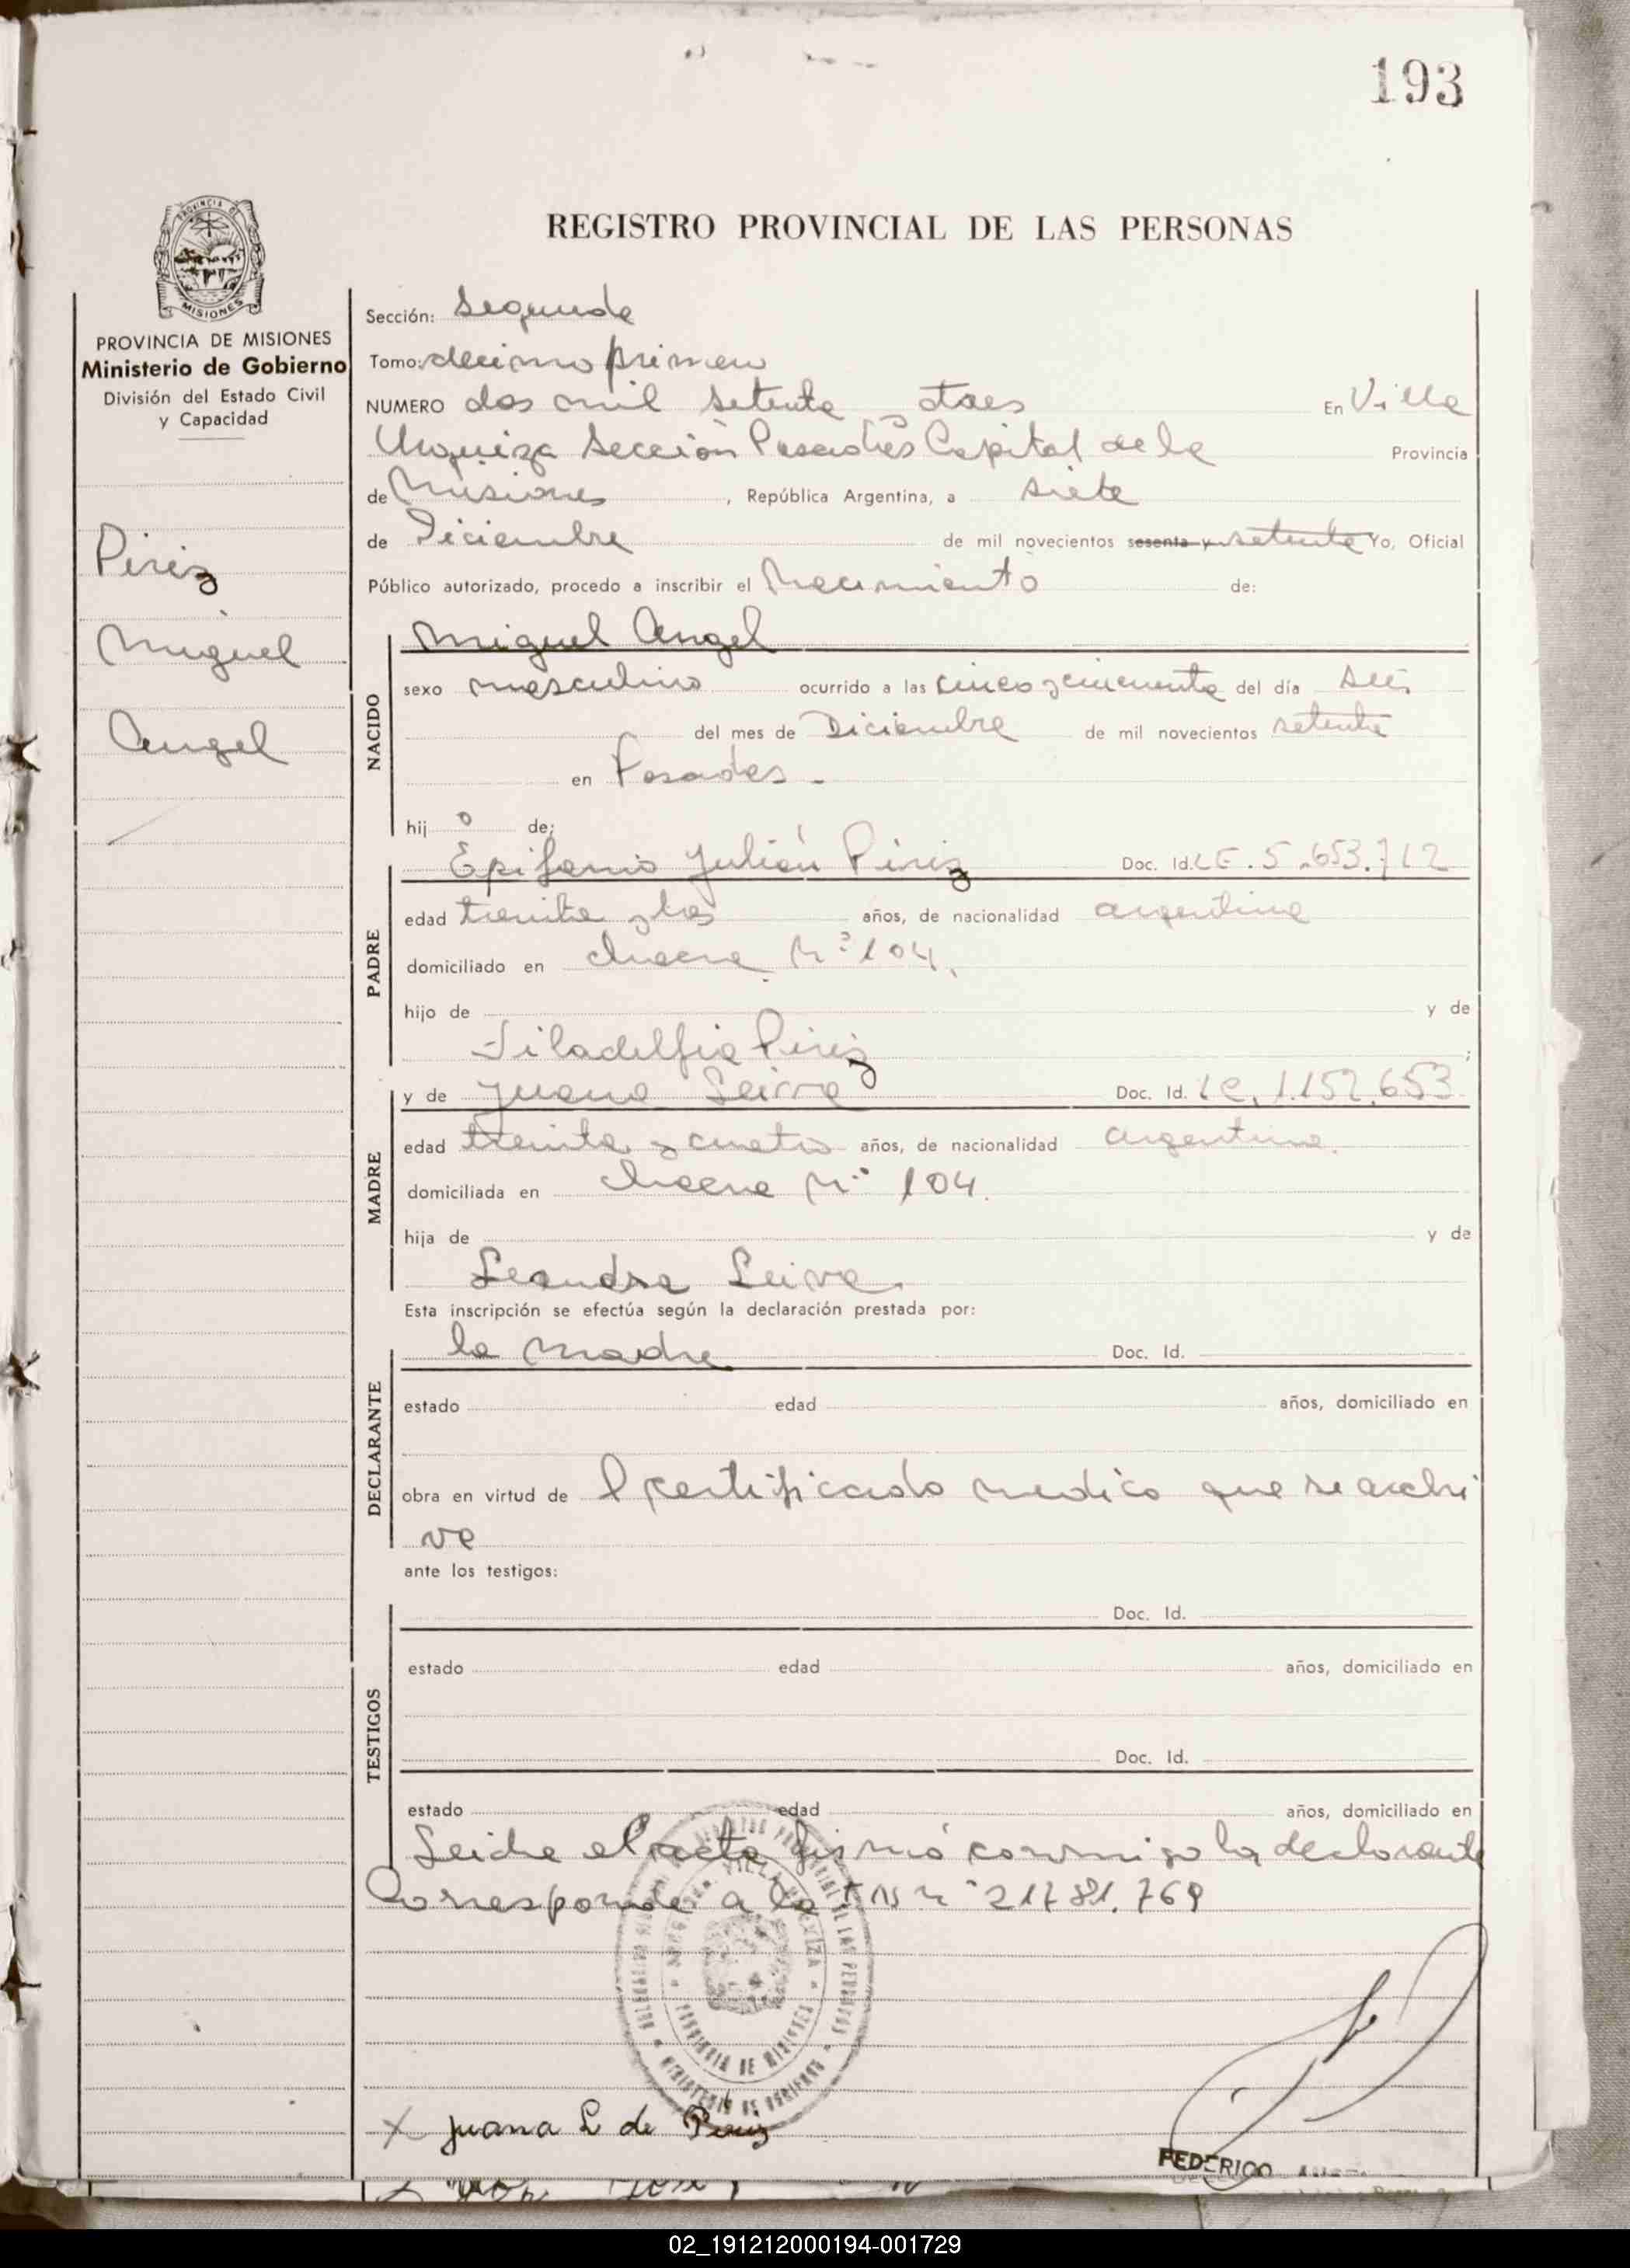 193
PROVINCIA DE
MISIONES
REGISTRO PROVINCIAL DE LAS PERSONAS
PROVINCIA DE MISIONES
Ministerio de Gobierno
División del Estado Civil
y Capacidad
Piriz
Miguel
Angel
Sección: Segunda
Tomo: decimo primero
NUMERO dos mil setenta y tres En Villa
Urquiza Sección Posadas Capital de la Provincia
de Misiones, República Argentina, a siete
de Diciembre de mil novecientos sesenta y setenta Yo, Oficial
Público autorizado, procedo a inscribir el Nacimiento de:
NACIDO
Miguel Angel
sexo masculino ocurrido a las cinco y cincuenta del día seis
del mes de Diciembre de mil novecientos setenta
en Posadas -
hij o de;
PADRE
Epifanio Julián Piriz Doc. Id. LE. 5.653.712
edad treinta y tres años, de nacionalidad argentina
domiciliado en chacra Nº 104.
hijo de y de
Filadelfia Piriz ;
MADRE
y de Juana Leiva Doc. Id. LC. 1.152.653
edad treinta y cuatro años, de nacionalidad argentina.
domiciliada en chacra Nº 104.
hija de y de
Leandra Leiva.
Esta inscripción se efectúa según la declaración prestada por:
DECLARANTE
la madre Doc. Id.
estado edad años, domiciliado en
obra en virtud de l certificado medico que se archi
va
ante los testigos:
TESTIGOS
Doc. Id.
estado edad años, domiciliado en
Doc. Id.
estado edad años, domiciliado en
Leida el acta firmó conmigo la declarante
Corresponde a la nº 21781.769
PROVINCIA DE MISIONES
MINISTERIO DE GOBIERNO
X Juana L de Piriz
FEDERICO
02_191212000194-001729